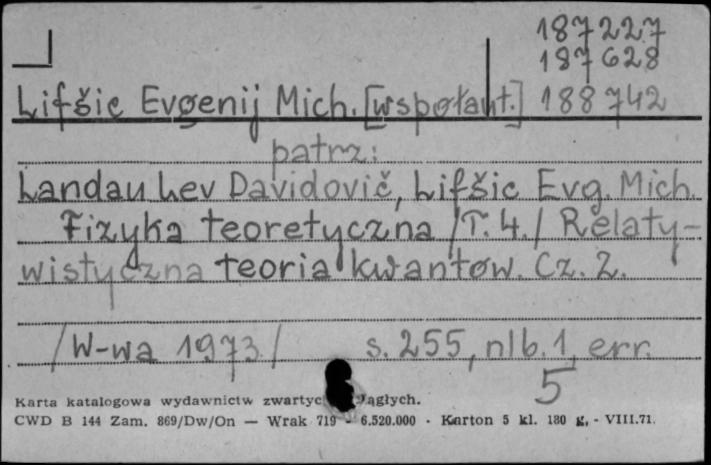 187227
187628
Lifšic Evgenij Mich. [współaut.] 188742
patrz:
Landau Lev Davidovič, Lifšic Evg. Mich.
Fizyka teoretyczna /T. 4./ Relaty-
wistyczna teoria kwantów. Cz. 2.
/W-wa 1973/ s. 255, nlb. 1, err.
5
Karta katalogowa wydawnictw zwartyc iągłych.
CWD B 144 Zam. 869/Dw/On — Wrak 719 - 6.520.000 - Karton 5 kl. 180 g. - VIII.71.